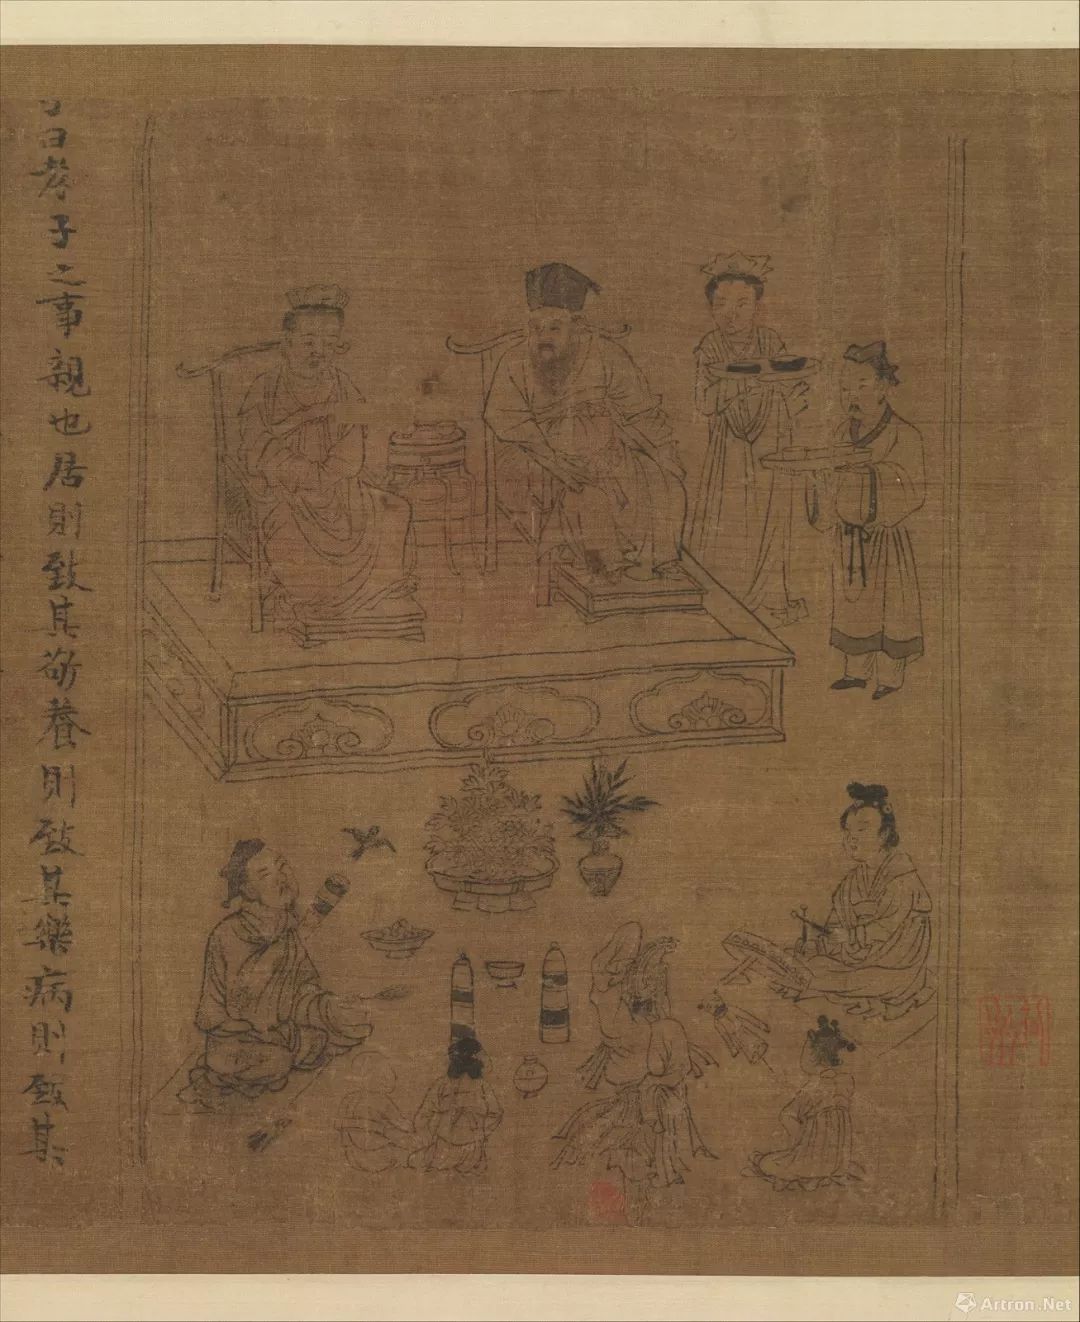 子曰孝子之事親也居則致其敬養則致其樂病則致其
Artron.Net